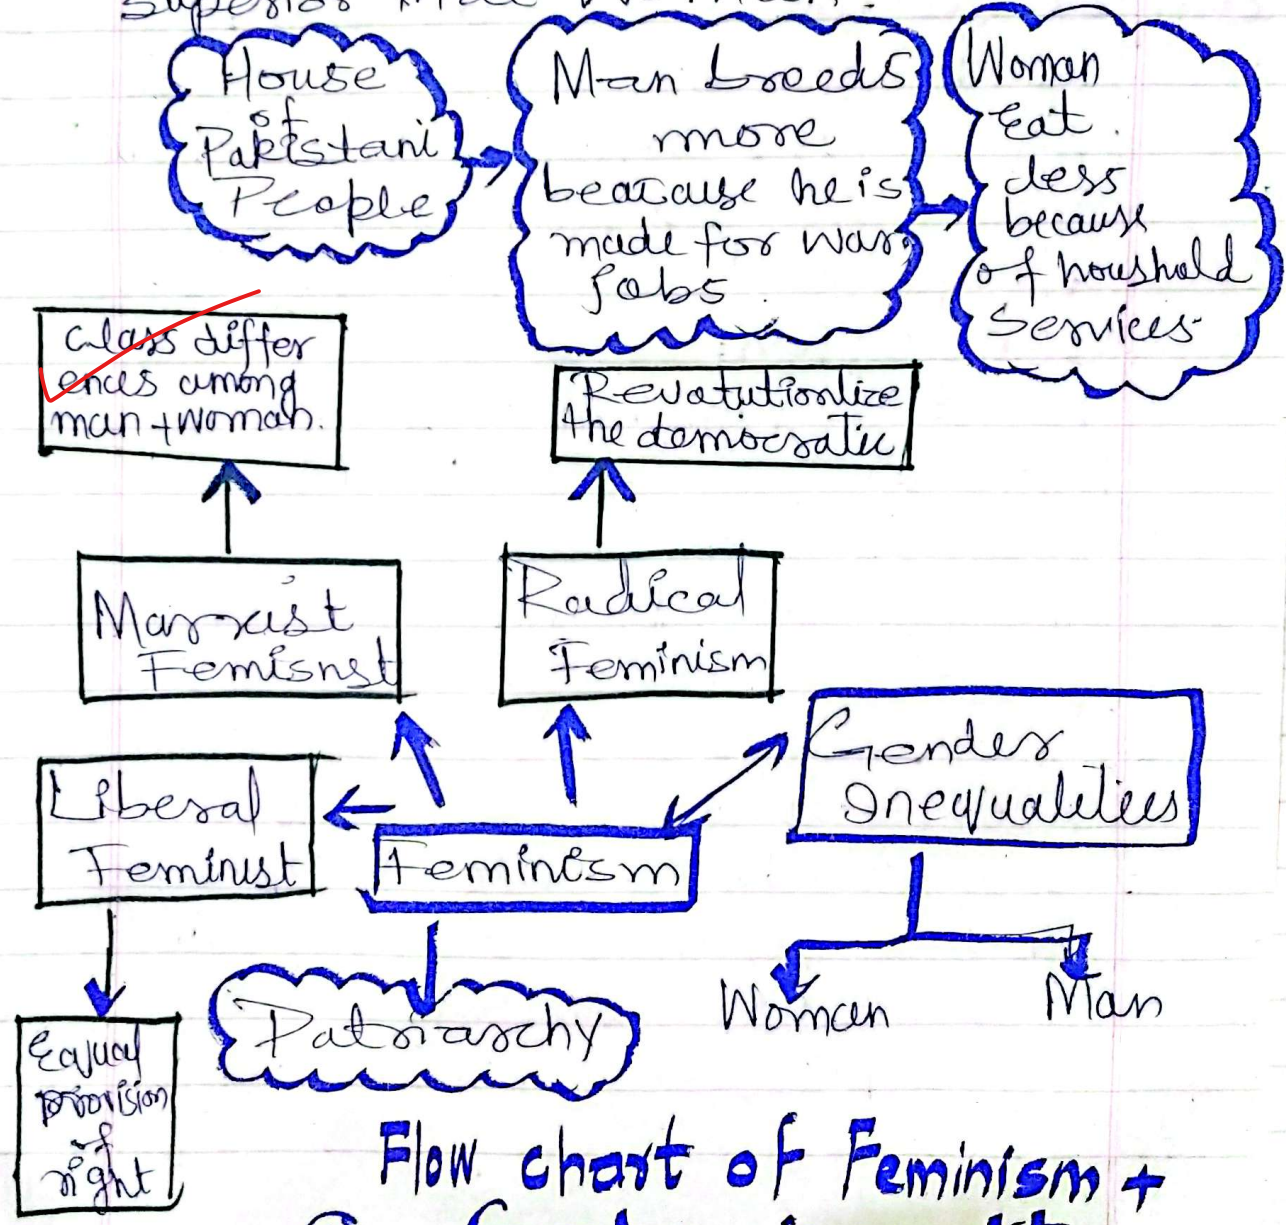 Superior than Women.
House
of
Pakistani
People
Man breeds
more
beacause he is
made for war,
Jobs.
Woman
Eat
less
because
of houshold
Services.
Class differ
ences among
man + woman.
Revolutionlize
the democratic
Marxist
Femisnst
Radical
Feminism
Gender
Inequalities
Liberal
Feminist
Feminism
Woman
Man
Patriarchy
Equal
provision
of
right
Flow chart of Feminism +